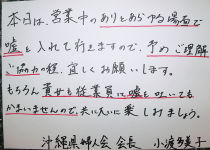 本日は、営業中のありとあらゆる場面で
嘘を入れて行きますので、予めご理解
ご協力の程、宜しくお願いします。
もちろん貴女も従業員に嘘を吐いても
かまいませんので、共に大いに楽しみましょう。
沖縄県婦人会 会長 小渡多美子